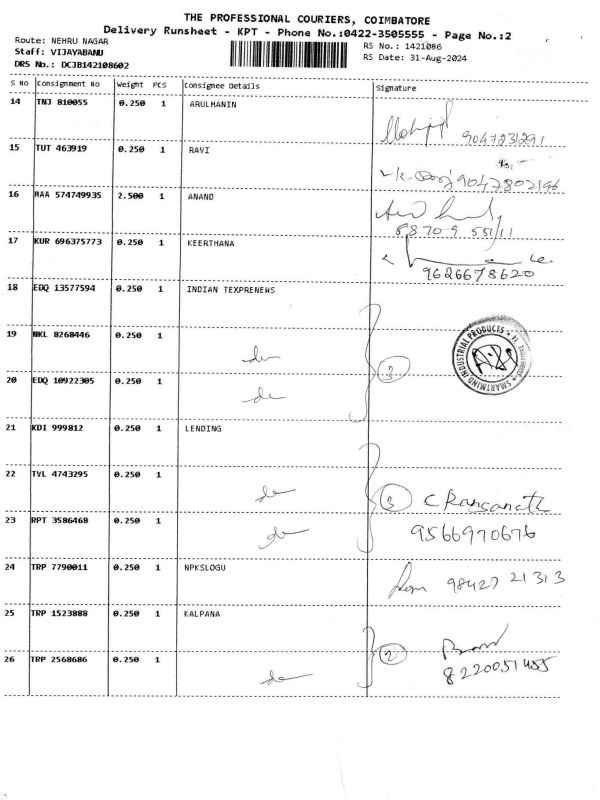 THE PROFESSIONAL COURIERS, COIMBATORE
Delivery Runsheet - KPT - Phone No.:0422-3505555 - Page No.:2
Route: NEHRU NAGAR
Staff: VIJAYABANU
DRS No.: DCJB142108602
RS No.: 1421086
RS Date: 31-Aug-2024
S NO Consignment No Weight PCS Consignee Details Signature
14 TNJ 810055 0.250 1 ARULMANIN
9047231291
15 TUT 463919 0.250 1 RAVI
9047802196
16 MAA 574749935 2.500 1 ANAND
88709 55111
17 KUR 696375773 0.250 1 KEERTHANA
9626678620
18 EDQ 13577594 0.250 1 INDIAN TEXPRENEWS
19 NKL 8268446 0.250 1 do
SMARTMIND INDUSTRIAL PRODUCTS
20 EDQ 10922305 0.250 1 do
21 KDI 999812 0.250 1 LENDING
22 TVL 4743295 0.250 1 do
3 C Ranganath
23 RPT 3586468 0.250 1 do
9566970676
24 TRP 7790011 0.250 1 NPKSLOGU
98427 21313
25 TRP 1523888 0.250 1 KALPANA
2
26 TRP 2568686 0.250 1 do
8220051455